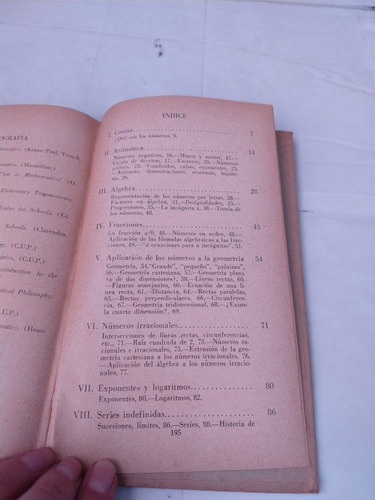 OGRAFIA
(Kegan Paul, Trench,
(Macmillan.)
in Mathematics?)
Elementary Trigonometry.
for Schools.
Schools. (Clarendon
(C.U.P.)
(C.U.P.)
Introduction to the
Philosophy.
(C.U.P.)
(Home
INDICE
I. Contar
¿Qué son los números, 9.
7
II. Aritmética
14
Números negativos, 16.—Mayor y menor, 17.—
Escala de decenas, 17.—Factores, 20.—Números
primos, 23.—Cuadrados, cubos, exponentes, 25.
—Axiomas, demostraciones, teoremas, hipótesis,
26.
III. Algebra
28
Representación de los números por letras, 28.—
Factores en álgebra, 31.—Desigualdades, 35.—
Progresiones, 35.—La incógnita x, 38.—Teoría de
los números, 40.
IV. Fracciones
43
La fracción a/0, 48.—Números en orden, 48.—
Aplicación de las fórmulas algebraicas a las fracciones,
V. Aplicación de los números a la geometría
54
Geometría, 54.—"Grande", "pequeño", "próximo",
56.—Geometría cartesiana, 56.—Geometría plana
(o de dos dimensiones), 58.—Líneas rectas, 58.—
Figuras semejantes, 60.—Ecuación de una línea
recta, 61.—Distancia, 64.—Rectas paralelas,
65.—Rectas perpendiculares, 66.—Circunferencia,
67.—Geometría tridimensional, 68.—¿Existe
la cuarta dimensión?, 69.
VI. Números irracionales
71
Intersecciones de líneas rectas, circunferencias,
etc., 71.—Raíz cuadrada de 2, 73.—Números racionales
e irracionales, 75.—Extensión de la geometría
cartesiana a los números irracionales, 76.
—Aplicación del álgebra a los números irracionales,
77.
VII. Exponentes y logaritmos
80
Exponentes, 80.—Logaritmos, 82.
VIII. Series indefinidas
86
Sucesiones, límites, 86.—Series, 88.—Historia de
195